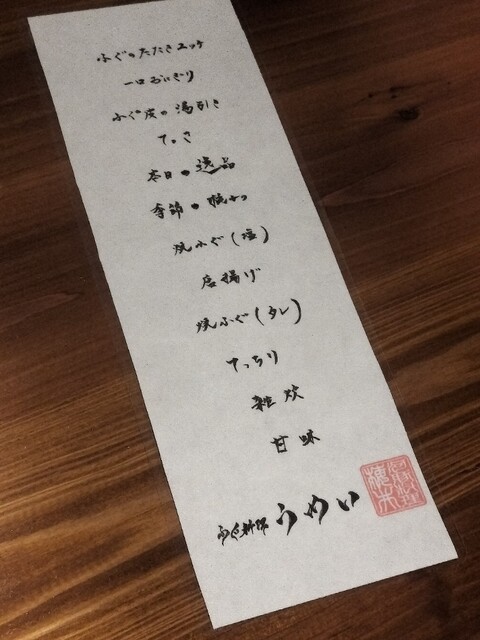 ふぐのたたきユッケ
一口おにぎり
ふぐ皮の湯引き
てっさ
本日の逸品
季節の椀
焼ふぐ(塩)
唐揚げ
焼ふぐ(タレ)
てっちり
雑炊
甘味
ふぐ料理 うめい